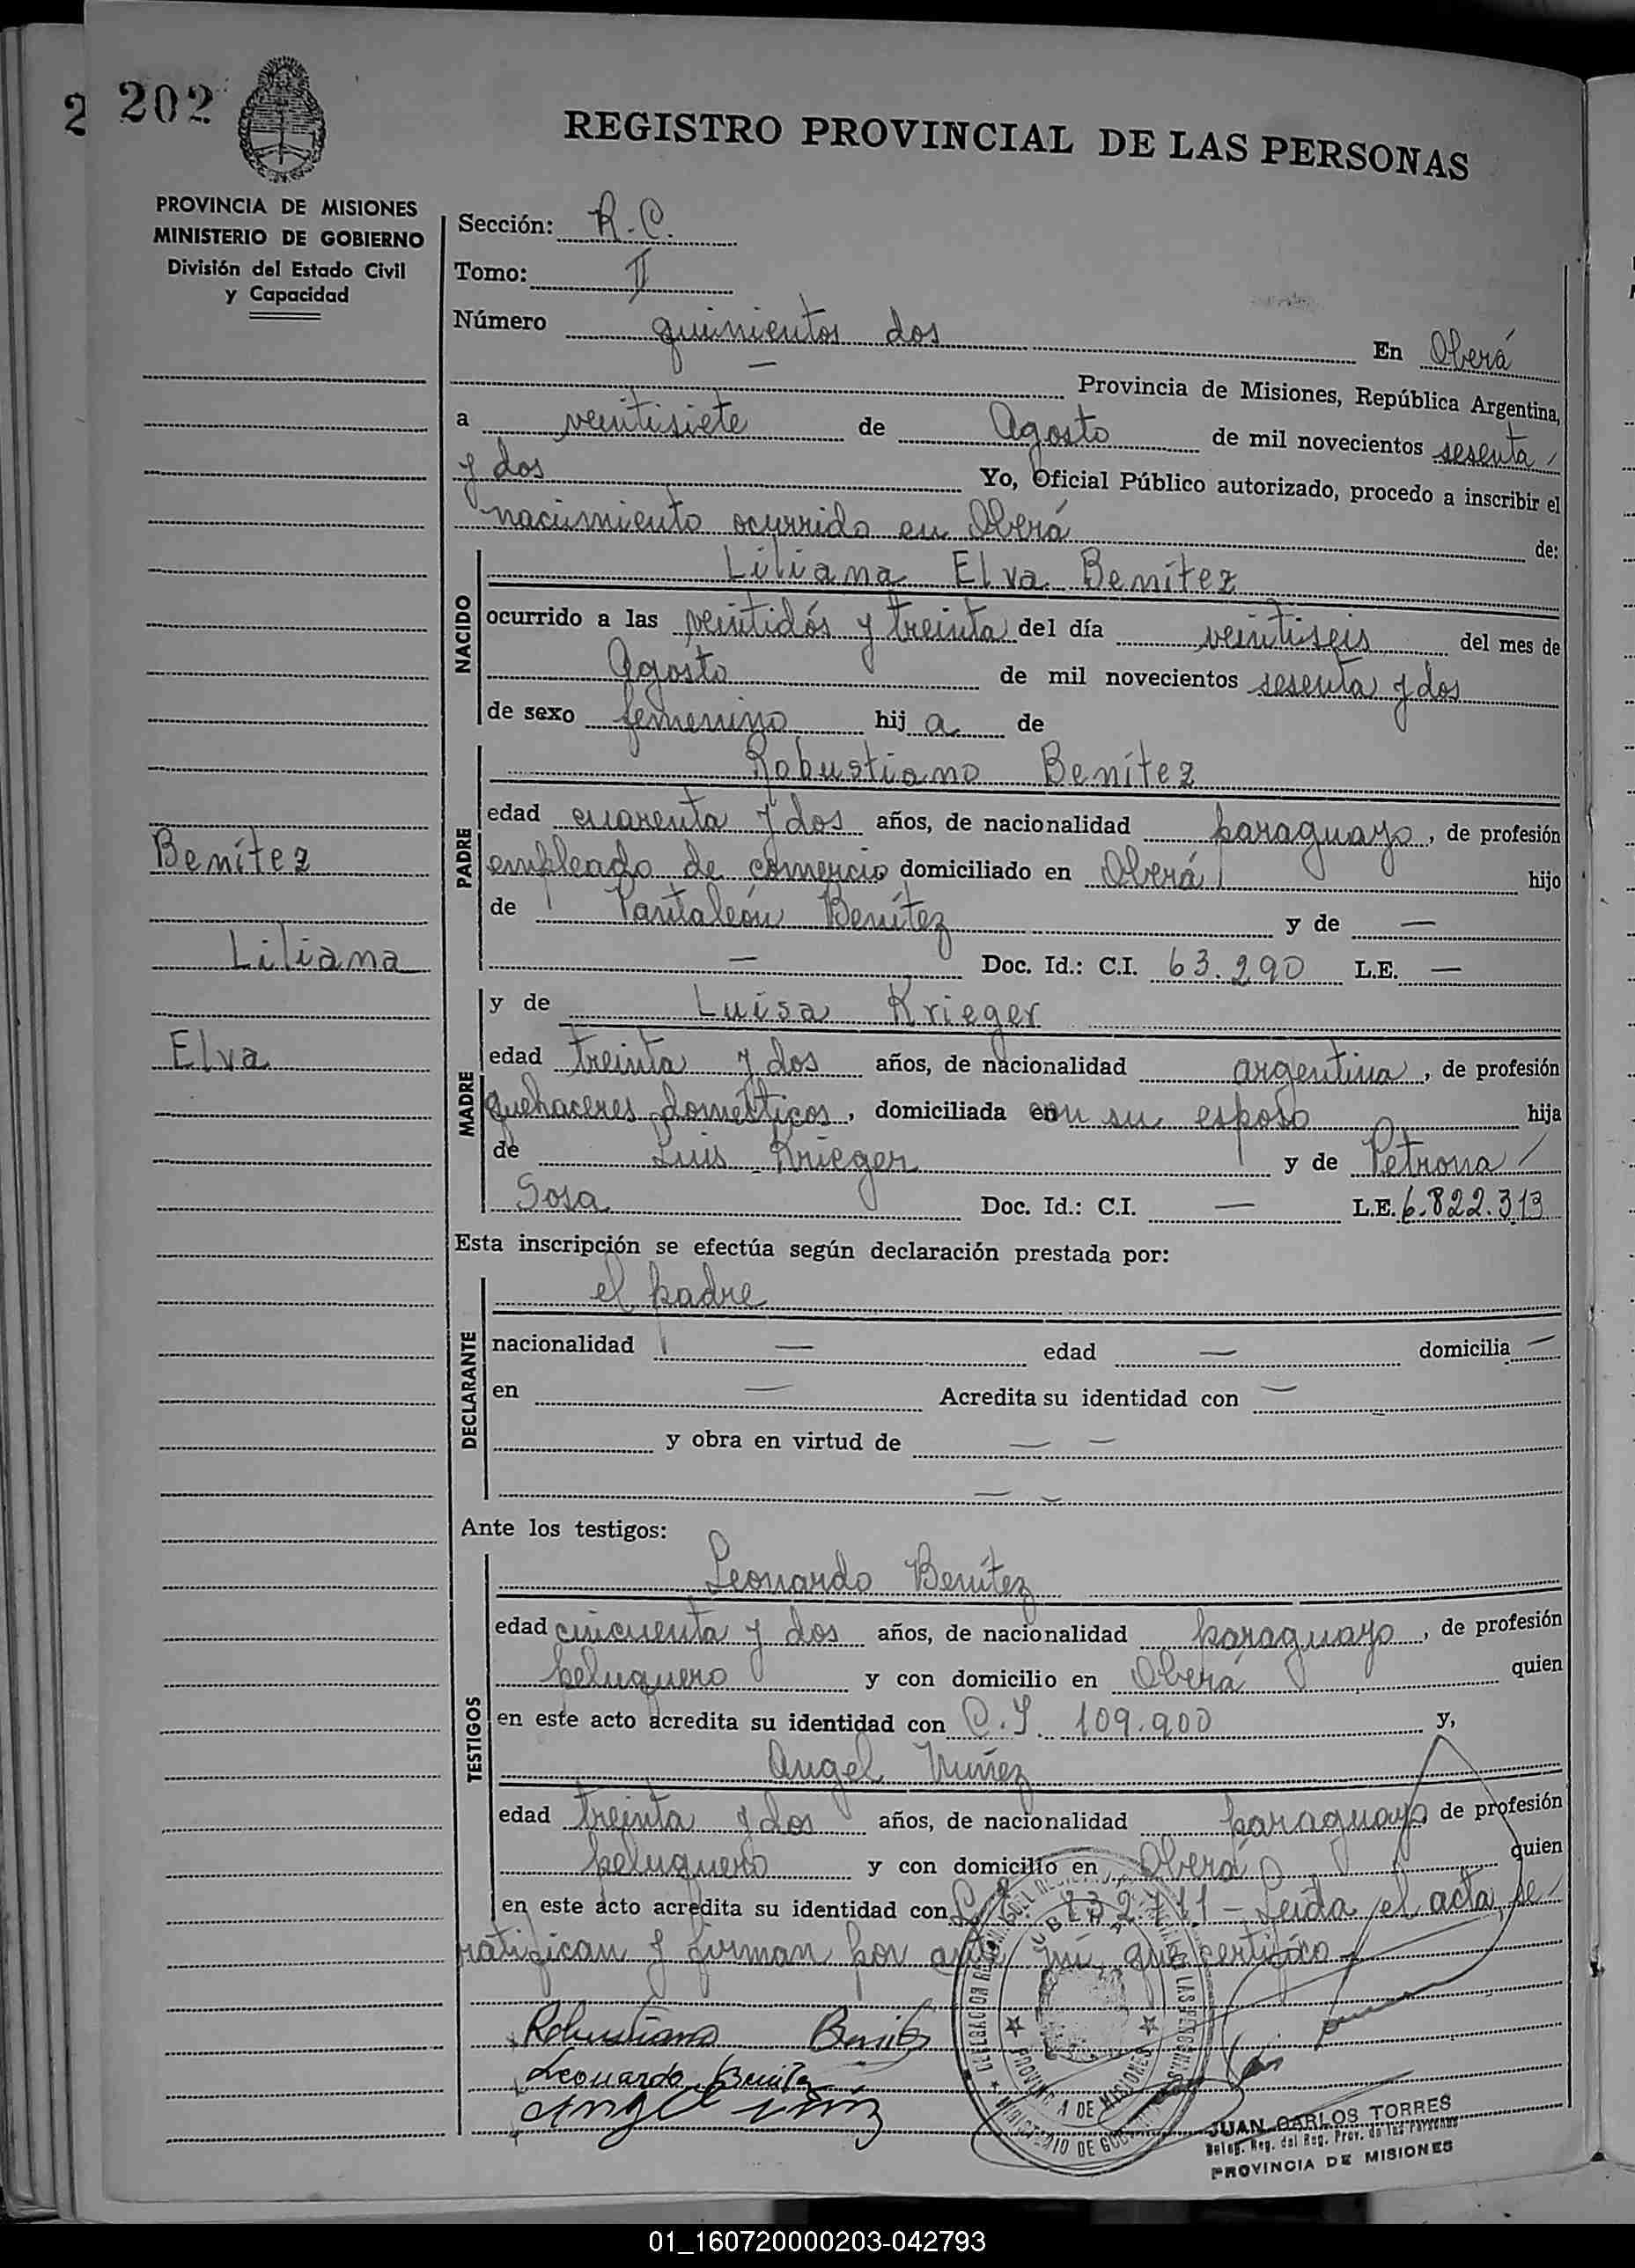 2 202
REGISTRO PROVINCIAL DE LAS PERSONAS
PROVINCIA DE MISIONES
MINISTERIO DE GOBIERNO
División del Estado Civil
y Capacidad
Sección: R.C.
Tomo: II
Número quinientos dos En Oberá
— Provincia de Misiones, República Argentina,
a veintisiete de Agosto de mil novecientos sesenta
y dos Yo, Oficial Público autorizado, procedo a inscribir el
nacimiento ocurrido en Oberá de:
NACIDO
Liliana Elva Benítez
ocurrido a las veintidós y treinta del día veintiseis del mes de
Agosto de mil novecientos sesenta y dos
de sexo femenino hija de
PADRE
Robustiano Benítez
edad cuarenta y dos años, de nacionalidad paraguayo, de profesión
Benítez
empleado de comercio domiciliado en Oberá hijo
de Pantaleón Benítez y de —
Liliana
— Doc. Id.: C.I. 63.290 L.E. —
MADRE
y de Luisa Krieger
Elva
edad treinta y dos años, de nacionalidad argentina, de profesión
quehaceres domésticos, domiciliada con su esposo hija
de Luis Krieger y de Petrona
Sosa Doc. Id.: C.I. — L.E. 6.822.313
Esta inscripción se efectúa según declaración prestada por:
DECLARANTE
el padre
nacionalidad — edad — domicilia —
en — Acredita su identidad con —
y obra en virtud de — —
— —
Ante los testigos:
TESTIGOS
Leonardo Benítez
edad cincuenta y dos años, de nacionalidad paraguayo, de profesión
peluquero y con domicilio en Oberá quien
en este acto acredita su identidad con C.I. 109.900 y,
Angel Nuñez
edad treinta y dos años, de nacionalidad paraguayo de profesión
peluquero y con domicilio en Oberá quien
en este acto acredita su identidad con C.I. — Leída el acta, se
ratifican y firman por ante mí, que certifico
Robustiano Benitez
Leonardo Benitez
Angel Nuñez
PROVINCIA DE MISIONES
MINISTERIO DE
JUAN CARLOS TORRES
Deleg. Reg. del Reg. Prov. de las Personas
PROVINCIA DE MISIONES
01_160720000203-042793